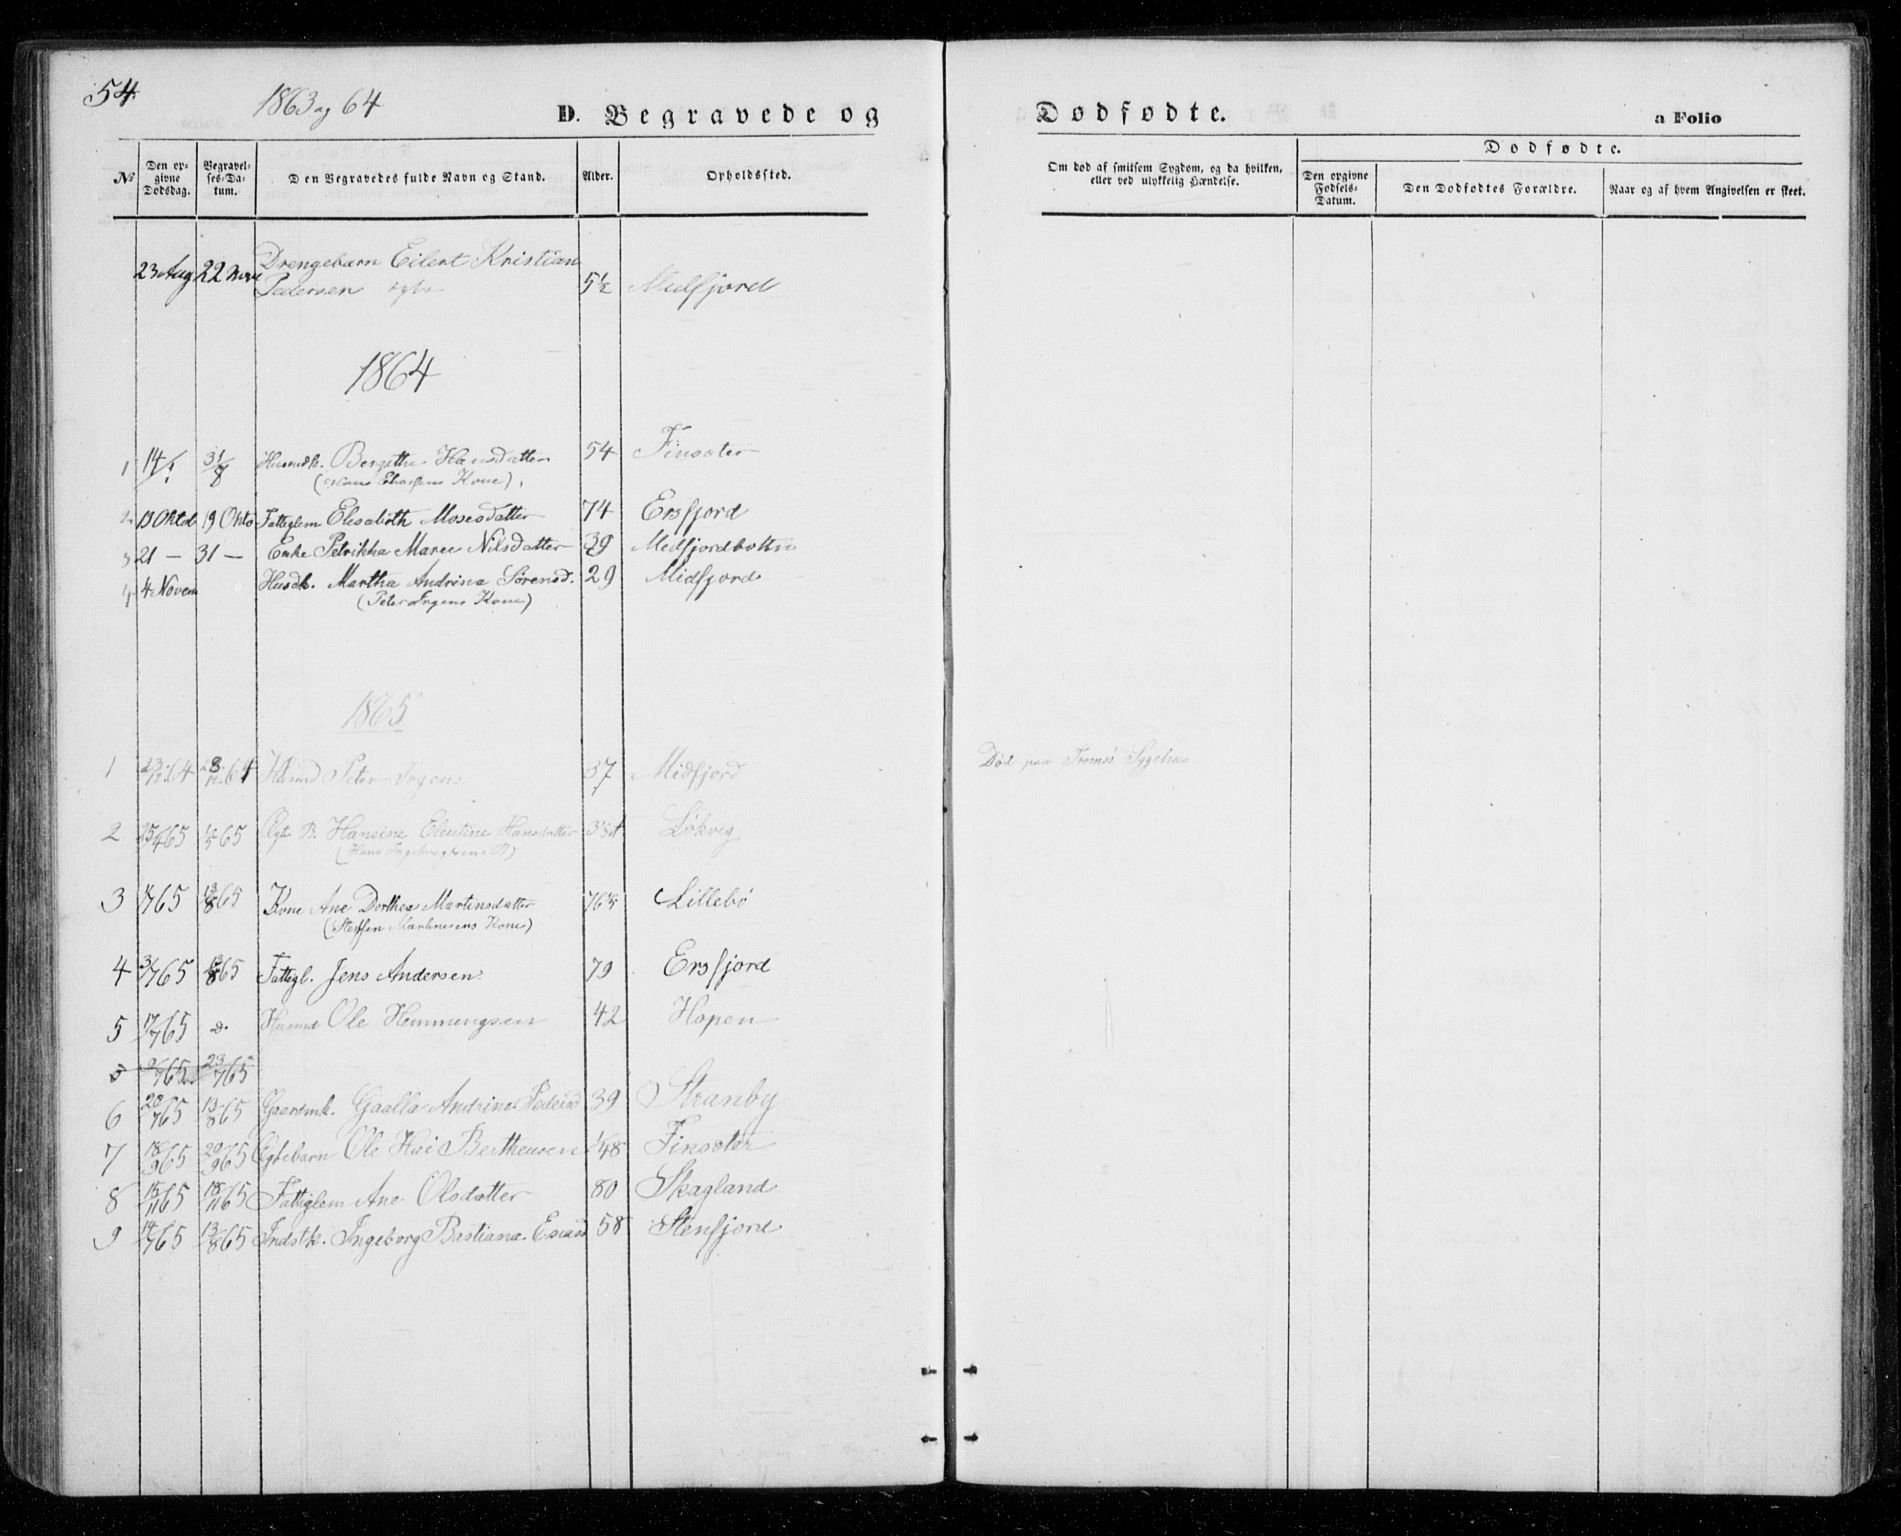 54
1863 og 64
D. Begravede og Dødfødte.
a Folio
No
Den opgivne Dødsdag.
Begravelses-Datum.
Den Begravedes fulde Navn og Stand.
Alder.
Opholdssted.
Om død af smitsom Sygdom, og da hvilken, eller ved ulykkelig Hændelse.
Dødfødte.
Den opgivne Fødsels-Datum.
Den Dødfødtes Forældre.
Naar og af hvem Angivelsen er skeet.
23 Aug 22 Nove Drengebarn Eilert Kristian
Pedersen ægte 5½ Midfjord
1864
1 14/ 31/8 Husmdk. Bergithe Hansdatter 54 Finsæter
(Hans Kone)
2 13 Oktob 19 Okto Fattiglem Elisabeth Mosesdatter 74 Ersfjord
3 21 — 31 — Enke Petrikka Maree Nilsdatter 39 Medfjordbotn
4 4 Novem Husdk. Martha Andrina Sørensd. 29 Midfjord
(Peter Irgens Kone)
1865
1 23/12 64 28/12 64 Husmd Peter Irgens 37 Midfjord Død paa Tromsø Sygehus
2 25/4 65 1/5 65 Ægt B. Hansine Elentine Hansdatter Løkvig
3 65 13/8 65 Kone Ane Dorthea Martinsdatter 76 Lillebø
(Steffen Martinusens Kone)
4 3/7 65 13/8 65 Fattigl. Jens Andersen 79 Ersfjord
5 17/7 65 d. Husmd Ole Hemmingsen 42 Hopen
5 9/7 65 23/7 65
6 20/7 65 13/8 65 Gaardmk. Gaalla Andrina Pedersd 39 Stranby
7 18/9 65 20/9 65 Egtebarn Ole Bertheusen Finsæter
8 15/11 65 18/11 65 Fattiglem Ane Olsdatter 80 Skagland
9 14/7 65 13/8 65 Indstk. Ingeborg Bastiana Esaiasd 58 Stenfjord